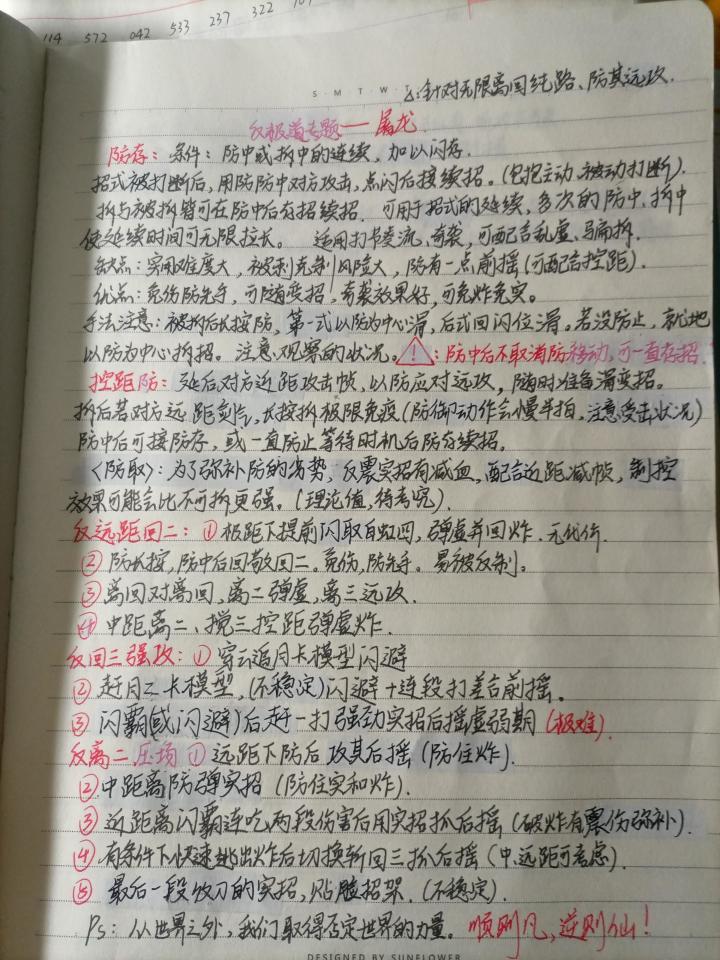 114 572 042 533 237 322
S · M · T W · T
针对无限离回纯路、防其远攻.
反极道专题——屠龙
防存：条件：防中或拆中的连续，加以闪存.
招式被打断后，用防防中对方攻击，点闪后接续招。(包抱主动、被动打断).
拆与被拆皆可在防中后存招续招. 可用于招式的延续，多次的防中、拆中
使延续时间可无限拉长。 适用打卡交流、奇袭，可配合乱虚、骗拆.
缺点：实用难度大，被刹克制风险大，防有一点前摇(可配合控距).
优点：免伤防先手，可随变招，奇袭效果好，可免炸免实。
手法注意：被拆后长按防，第一式以防为中心滑，后式回闪位滑。若没防止，就地
以防为中心拆招。注意观察的状况。 ! ：防中后不取消防移动，可一直存招.
控距防：延后对方近距攻击帧，以防应对远攻，随时准备滑变招。
拆后若对方远距剑气，长按拆极限免疫(防御动作会慢半拍，注意受击状况)
防中后可接防存，或一直防止等待时机后防存续招.
〈防取〉：为了弥补防的劣势，反震实招有减血，配合近距减帧，制控
效果可能会比不可拆更强。(理论值，待考究).
反远距回二：① 极距下提前闪取白虹四，弹虚并回炸. 无代价.
② 防长按，防中后回敬回二。免伤，防先手。易被反制。
③ 离回对离回，离二弹虚，离三远攻.
④ 中距离二、搅三控距弹虚炸.
反回三强攻：① 穿云追月卡模型闪避
② 赶月二卡模型，(不稳定)闪避+连段打差合前摇。
③ 闪霸(或闪避)后赶一打强劲实招后摇虚弱期(极难).
反离二压场 ① 远距下防后攻其后摇(防住炸).
② 中距离防弹实招 (防住实和炸).
③ 近距离闪霸连吃两段伤害后用实招抓后摇(破炸有震伤弥补).
④ 有条件下快速跳出炸后切换斩回三抓后摇(中、远距可考虑).
⑤ 最后一段收刀的实招，贴脸招架.(不稳定).
Ps：从世界之外，我们取得否定世界的力量。 顺则凡，逆则仙！
DESIGNED BY SUNFLOWER